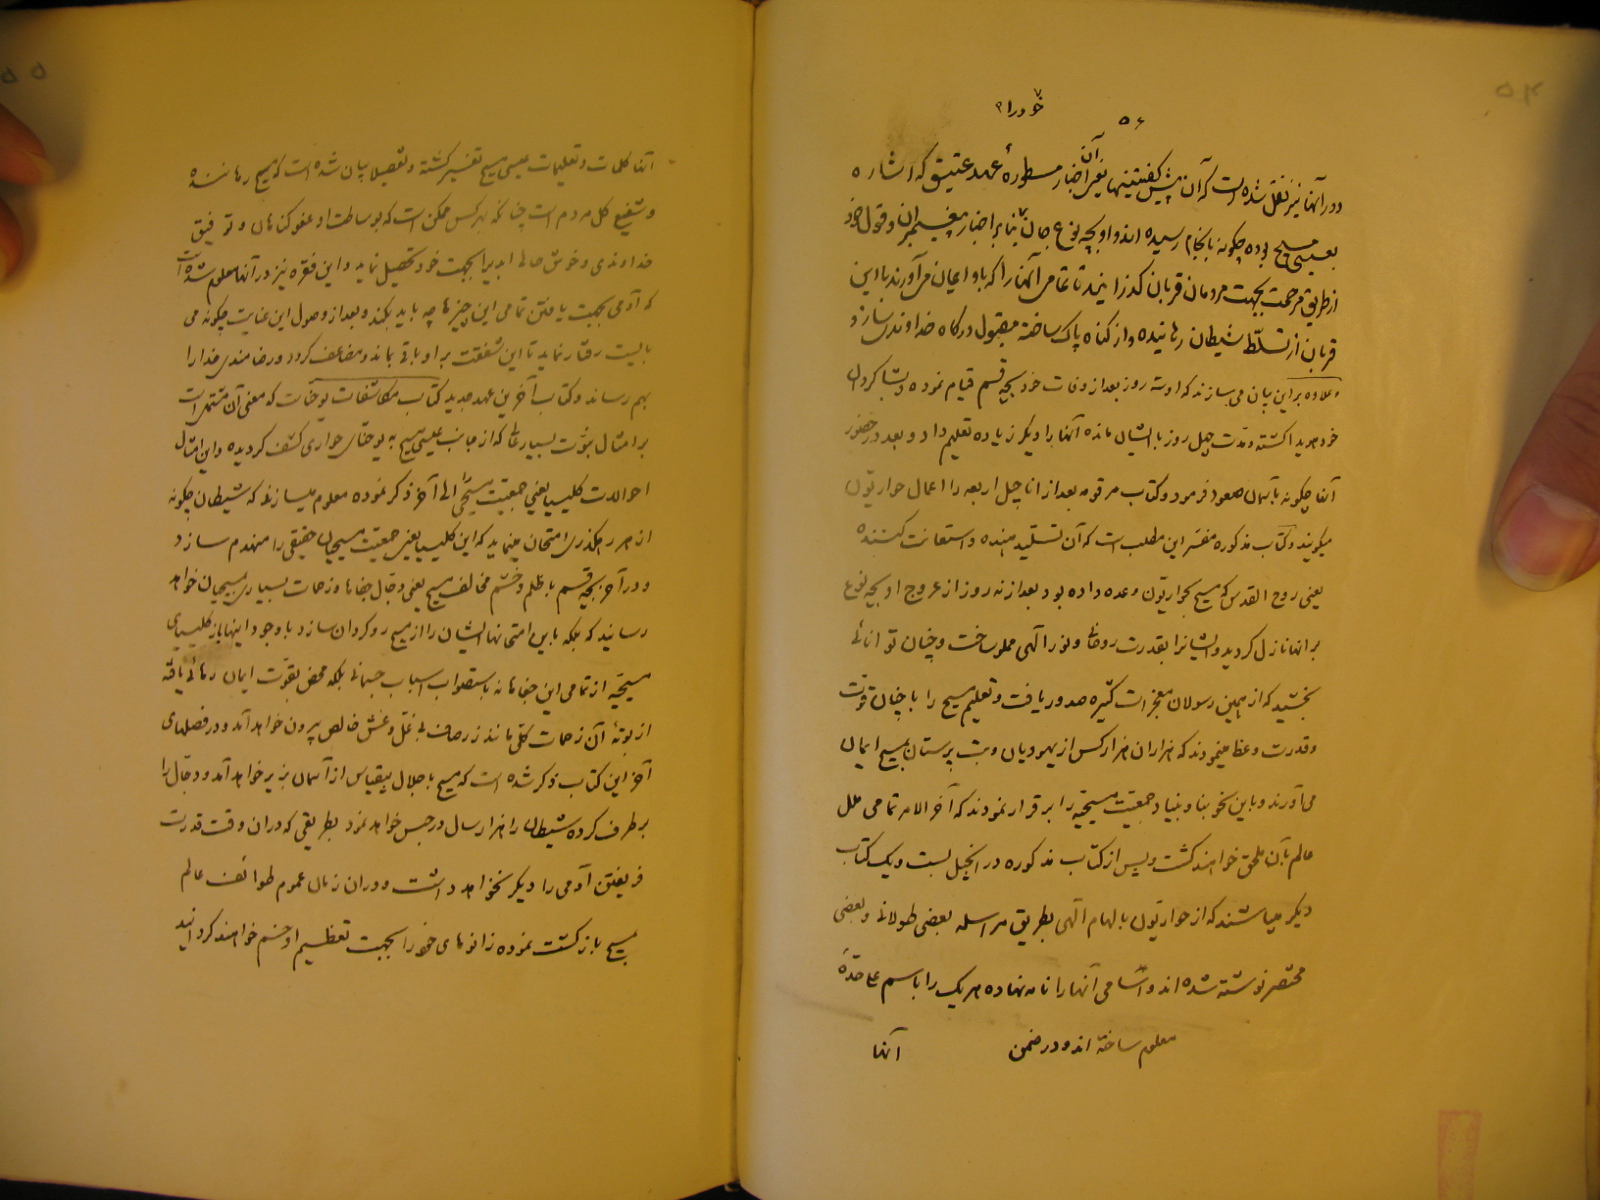 ۵۴
۵۶
خود را ؟
آن
و در آنها نیز نقل شده است که آن پیش گفتنیها یعنی اخبار مسطورهٔ عهد عتیق که اشاره
بعیسی مسیح بوده چگونه بانجام رسیده اند و او بچه نوع جان بنابر اخبار پیغمبران و قول خود
از طریق مرحمت بجهت مردمان قربان گذرانید تا تمامی آنها را که باو ایمان می آورند با این
قربان از تسلّط شیطان رهانیده و از گناه پاک ساخته مقبول درگاه خداوندی سازد
و علاوه بر این بیان می سازند که او سه روز بعد از وفات خود بچه قسم قیام نموده و بشاگردان
خود هویدا گشته و مدّت چهل روز با ایشان مانده آنها را دیگر زیاده تعلیم داد و بعد در حضور
آنها چگونه بآسمان صعود فرمود و کتاب مرقومه بعد از اناجیل اربعه را اعمال حواریّون
میگویند و کتاب مذکوره مفسّر این مطلب است که آن تسلّی دهنده و استعانت کننده
یعنی روح القدس که مسیح بحواریّون وعده داده بود بعد از نه روز از عروج او بچه نوع
بر آنها نازل گردید و ایشانرا بقدرت روحانی و نور الهی مملو ساخت و چنان توانائی
بخشید که از همین رسولان معجزات کثیره صدور یافت و تعلیم مسیح را با چنان قوّت
و قدرت وعظ مینمودند که هزاران هزار کس از یهودیان و بت پرستان بمسیح ایمان
می آورند و باین نحو بنا و بنیاد جمعیّت مسیحیّه را برقرار نمودند که آخر الامر تمامی ملل
عالم بآن ملحق خواهند گشت و پس از کتاب مذکوره در انجیل بیست و یک کتاب
دیگر میباشند که از حواریّون بالهام الهی بطریق مراسله بعضی طولانی و بعضی
مختصر نوشته شده اند و اسامی آنها را نامه نهاده هر یک را باسم علاحدّه
معلوم ساخته اند و در ضمن
آنها
۵۵
آنها کلمات و تعلیمات عیسی مسیح تفسیر گشته و بتفصیل بیان شده است که مسیح رهاننده
و شفیع کل مردم است چنانکه هر کس ممکن است که بوساطت او عفو گناهان و توفیق
خداوندی و خوش حالی ابدیرا بجهت خود تحصیل نماید و این فقره نیز در آنها معلوم شده است
که آدمی بجهت یافتن تمامی این چیزها چه باید بکند و بعد از وصول این عنایت چگونه می
بایست رفتار نماید تا این شفقت بر او باقی بماند و مضاعف گردد و رضامندی خدا را
بهم رساند و کتاب آخرین عهد جدید کتاب مکاشفات یوحنّاست که معنی آن مشتملست
بر امثال نبوّت بسیاری که از جانب عیسی مسیح به یوحنّای حواری کشف گردیده و این امثال
احوالات کلیسیا یعنی جمعیّت مسیحی را الی آخر ذکر نموده معلوم میسازند که شیطان چگونه
از هر رهگذری امتحان مینماید که این کلیسیا یعنی جمعیّت مسیحیان حقیقی را منهدم سازد
و در آخر بچه قسم با ظلم و خشم مخالف مسیح یعنی دجّال جفاها و زحمات بسیاری بمسیحیان خواهد
رسانید که بلکه باین امتحانها ایشان را از مسیح روگردان سازد با وجود اینها باز کلیسیای
مسیحیّه از تمامی این جفاها نه باستصواب اسباب جسمانی بلکه محض بقوّت ایمان رهائی یافته
از بوتهٔ آن زحمات کلّی مانند زر صاف بی غلّ و غش خالص بیرون خواهد آمد و در فصلهای
آخر این کتاب ذکر شده است که مسیح با جلال بیقیاس از آسمان بزیر خواهد آمد و دجّال را
برطرف کرده شیطان را هزار سال در حبس خواهد نمود بطریقی که در ان وقت قدرت
فریفتن آدمی را دیگر نخواهد داشت و در ان زمان عموم طوائف عالم
بمسیح بازگشت نموده زانوهای خود را بجهت تعظیم او خم خواهند گردانید